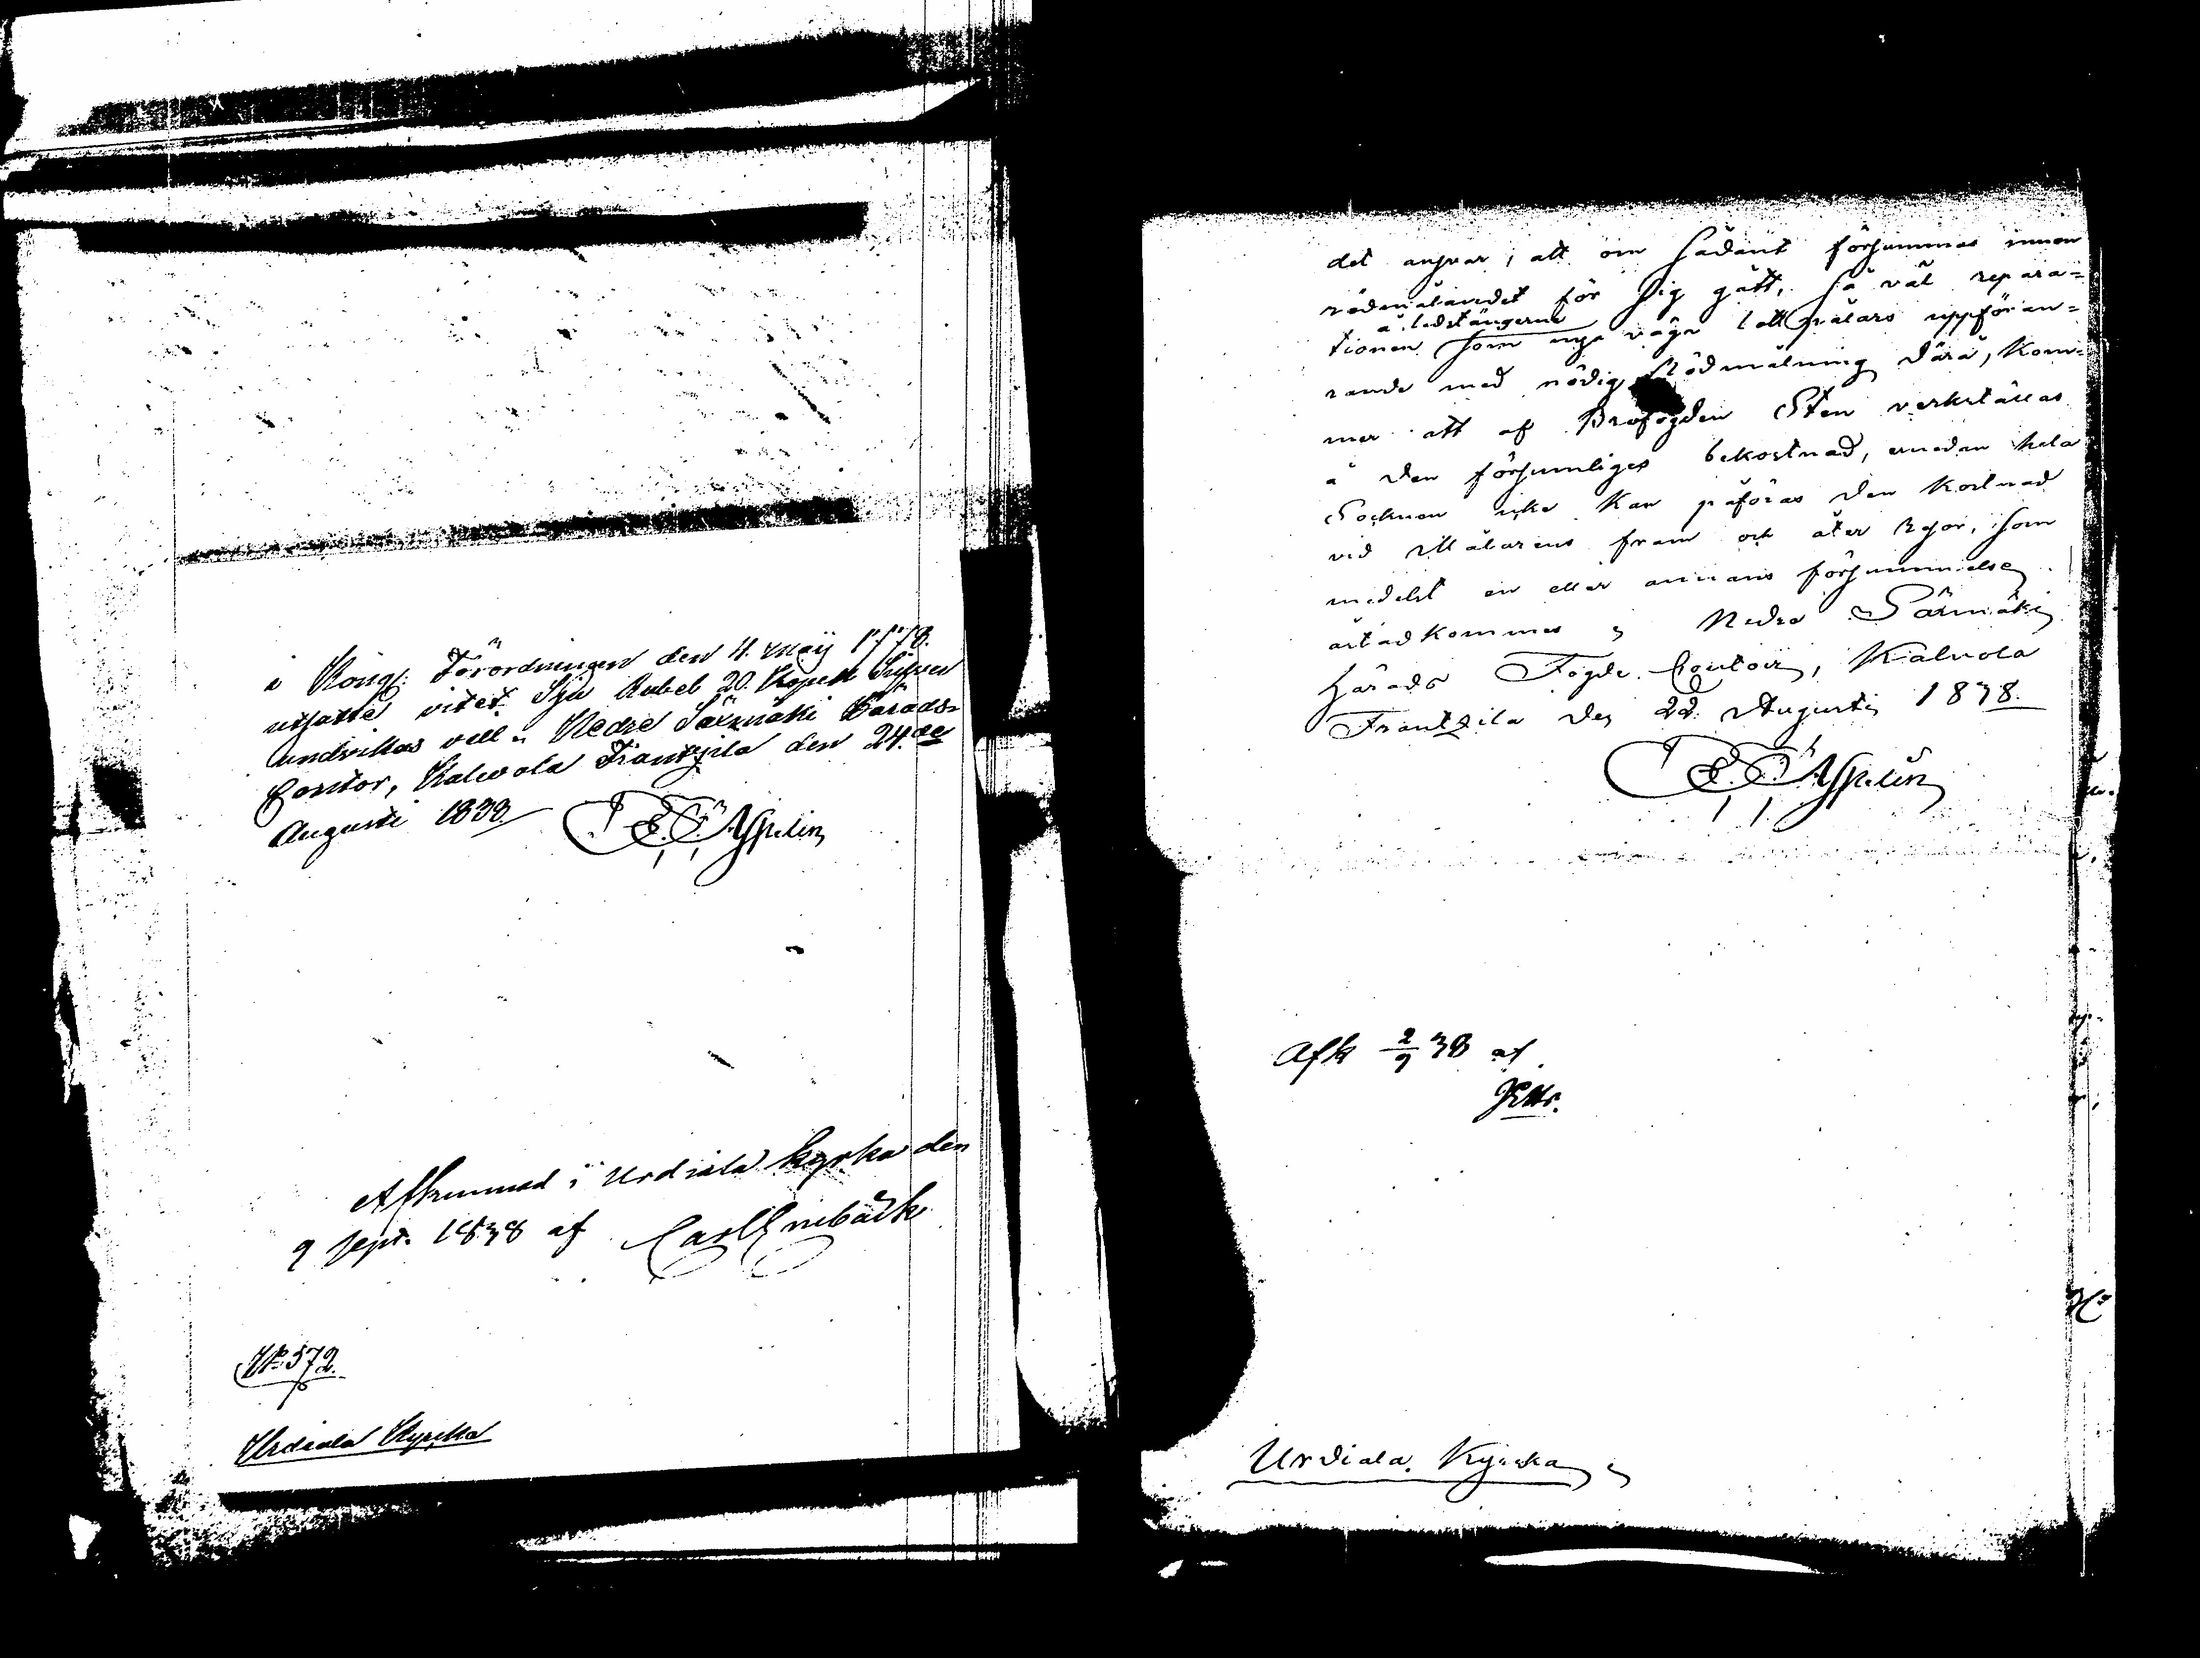 i Kongl. Förordningen den 4. Maij 1778.
utsatte vitet Sju Rubel 20. Kopek Silfver
undvikas vill. Nedre Säxmäki Härads-
Contor, Kalvola Frantzila den 24.de
Augusti 1838. Asspelin
Afkunnad i Urdiala kyrka den
9 Sept. 1838 af Carl Enebäck
No 572.
Urdiala Kyrka
det ansvar, att om sådant försummas innan
rödmålandet för sig gått, så väl repara-
å ledstängerne
tionen som nya väga lott pålars uppföran-
rande med nödig Rödmålning därå, kom-
mer att af Brofogden Sten verkställas
å den försumliges bekostnad, emedan hela
Socknen icke kan påföras den kostnad
vid Målarens fram och åter resor, som
medelst en eller annans försummelse
åstadkommes Nedre Säxmäki
Härads Fogde Contoir, Kalvola
Frantzila den 22. Augusti 1838.
Asspelin
Afk 2/9 38 af
Urdiala Kyrka